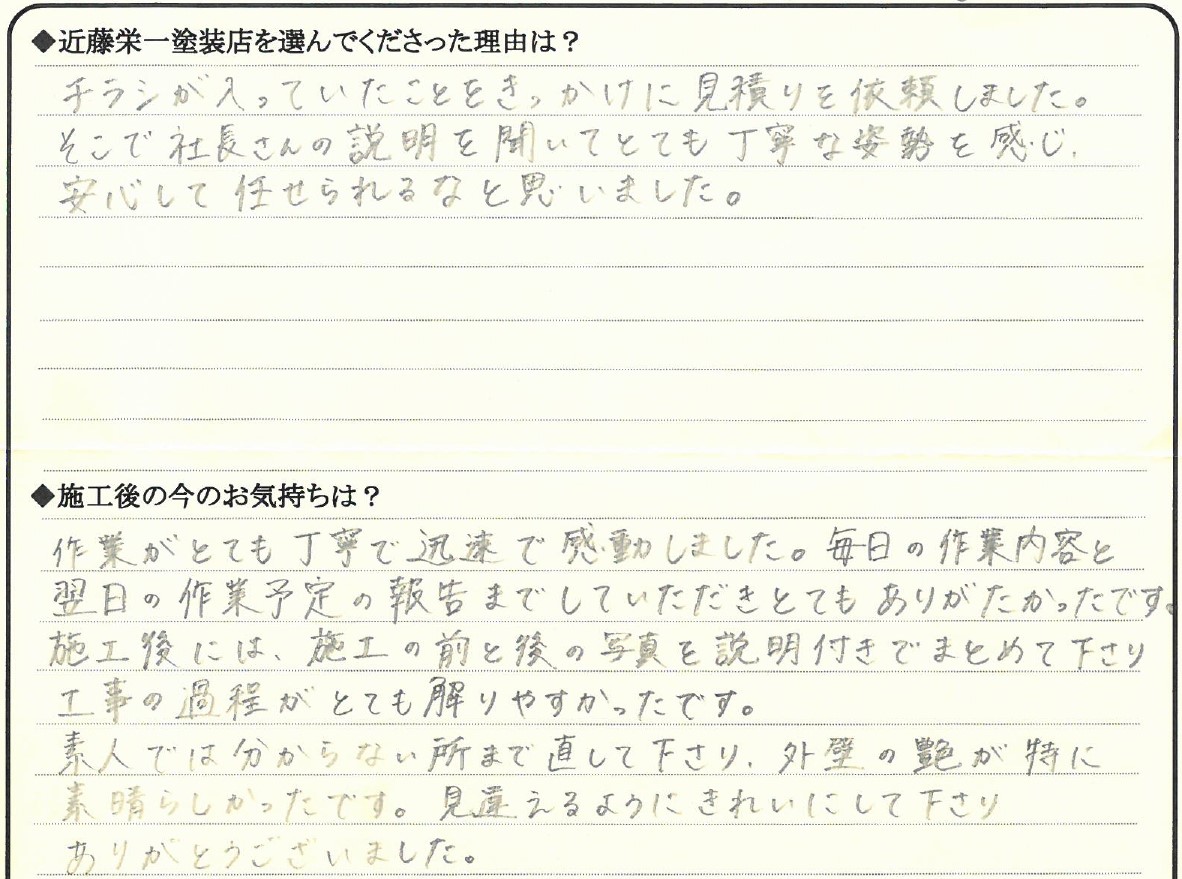 ◆近藤栄一塗装店を選んでくださった理由は？
チラシが入っていたことをきっかけに見積りを依頼しました。
そこで社長さんの説明を聞いてとても丁寧な姿勢を感じ、
安心して任せられるなと思いました。
◆施工後の今のお気持ちは？
作業がとても丁寧で迅速で感動しました。毎日の作業内容と
翌日の作業予定の報告までしていただきとてもありがたかったです。
施工後には、施工の前と後の写真を説明付きでまとめて下さり
工事の過程がとても解りやすかったです。
素人では分からない所まで直して下さり、外壁の艶が特に
素晴らしかったです。見違えるようにきれいにして下さり
ありがとうございました。